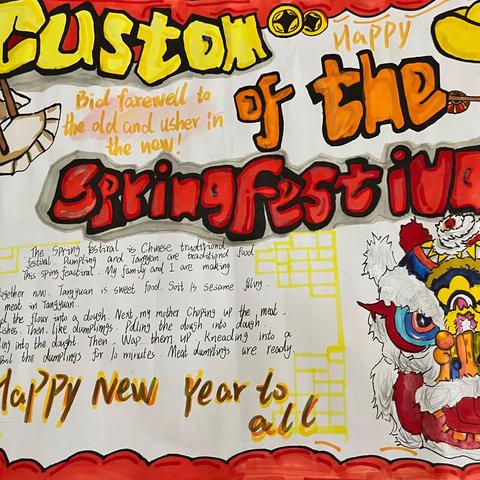 Custom
Happy
of the
Bid farewell to
the old and usher in
the now!
Spring Festival
The Spring festival is Chinese traditional
festival. Dumpling and Tangyan are traditional food
This sping feactival. My family and I are making
together now. Tangyuan is sweet food. Soit is sesame fliing.
meat in Tangyuan.
the flour into a dough. Next my mother Choping up the meat,
Then. like dumplings. Pulling the dough into dough.
ing into the dought. Then. Wap them up. Kneading into a
the dumplings for 10 minutes. Meat dumplings are ready.
Happy New Year to
all